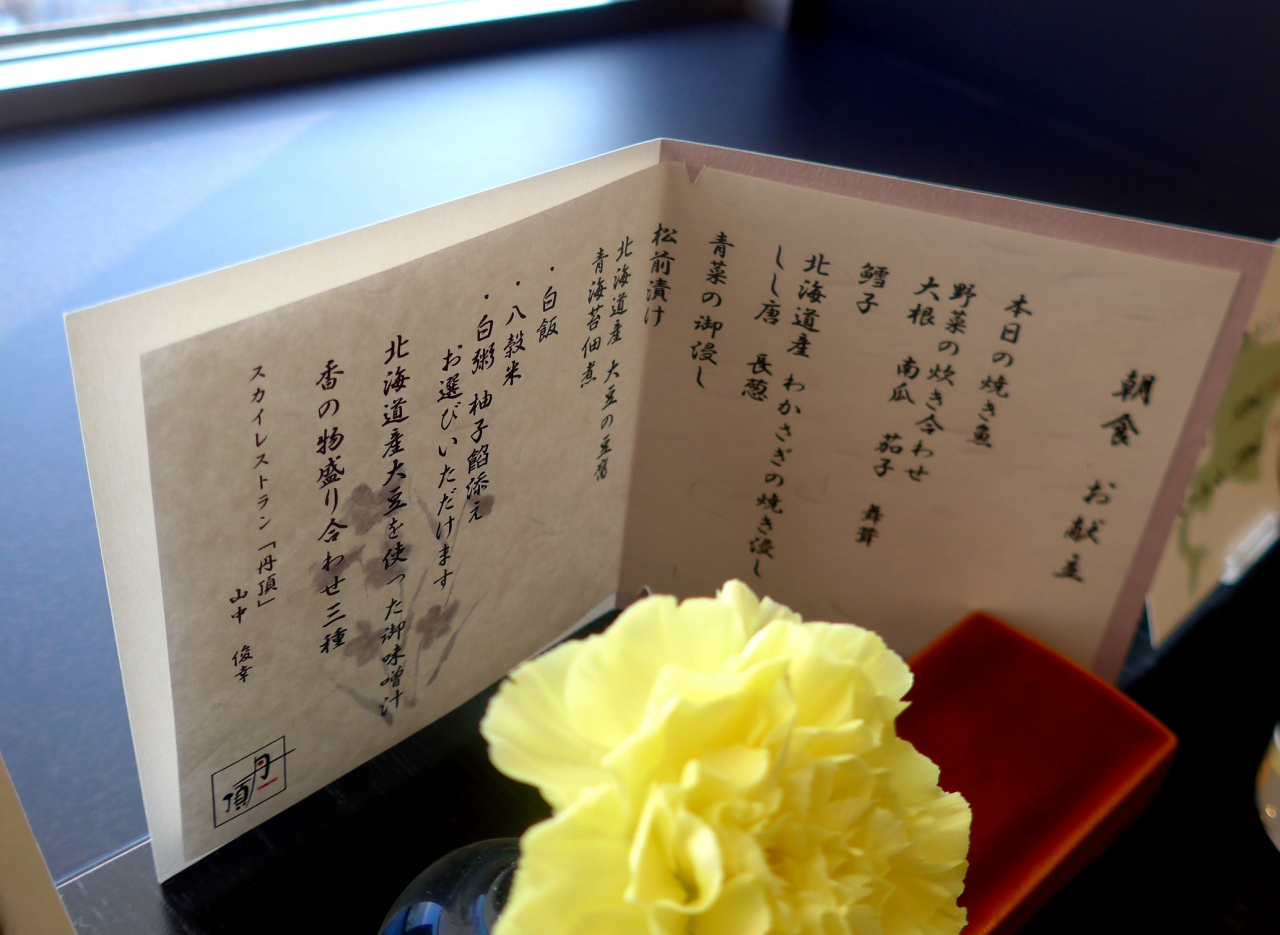 朝食 お献立
本日の焼き魚
野菜の炊き合わせ
大根 南瓜 茄子 舞茸
鱈子
北海道産 わかさぎの焼き浸し
しし唐 長葱
青菜の御浸し
松前漬け
北海道産 大豆の豆腐
青海苔佃煮
・白飯
・八穀米
・白粥 柚子餡添え
お選びいただけます
北海道産大豆を使った御味噌汁
香の物盛り合わせ三種
スカイレストラン「丹頂」
山中 俊幸
丹頂